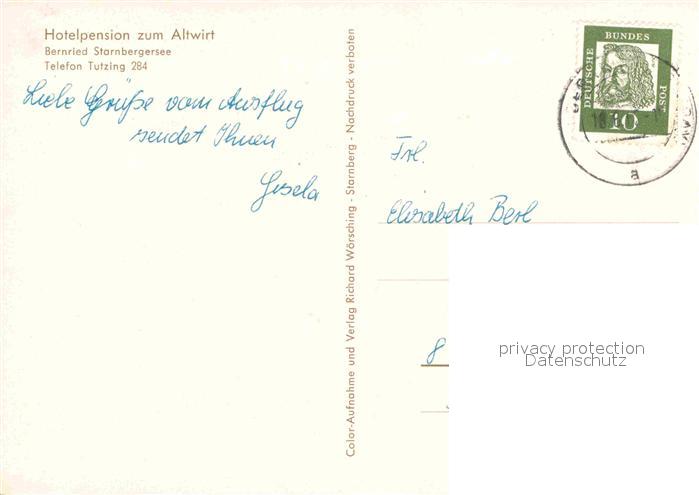 Hotelpension zum Altwirt
Bernried Starnbergersee
Telefon Tutzing 284
Liebe Grüße vom Ausflug
sendet Ihnen
Gisela
Color-Aufnahme und Verlag Richard Wörsching - Starnberg - Nachdruck verboten
DEUTSCHE
BUNDES
POST
10
a
Frl.
Elisabeth Berl
8
privacy protection
Datenschutz